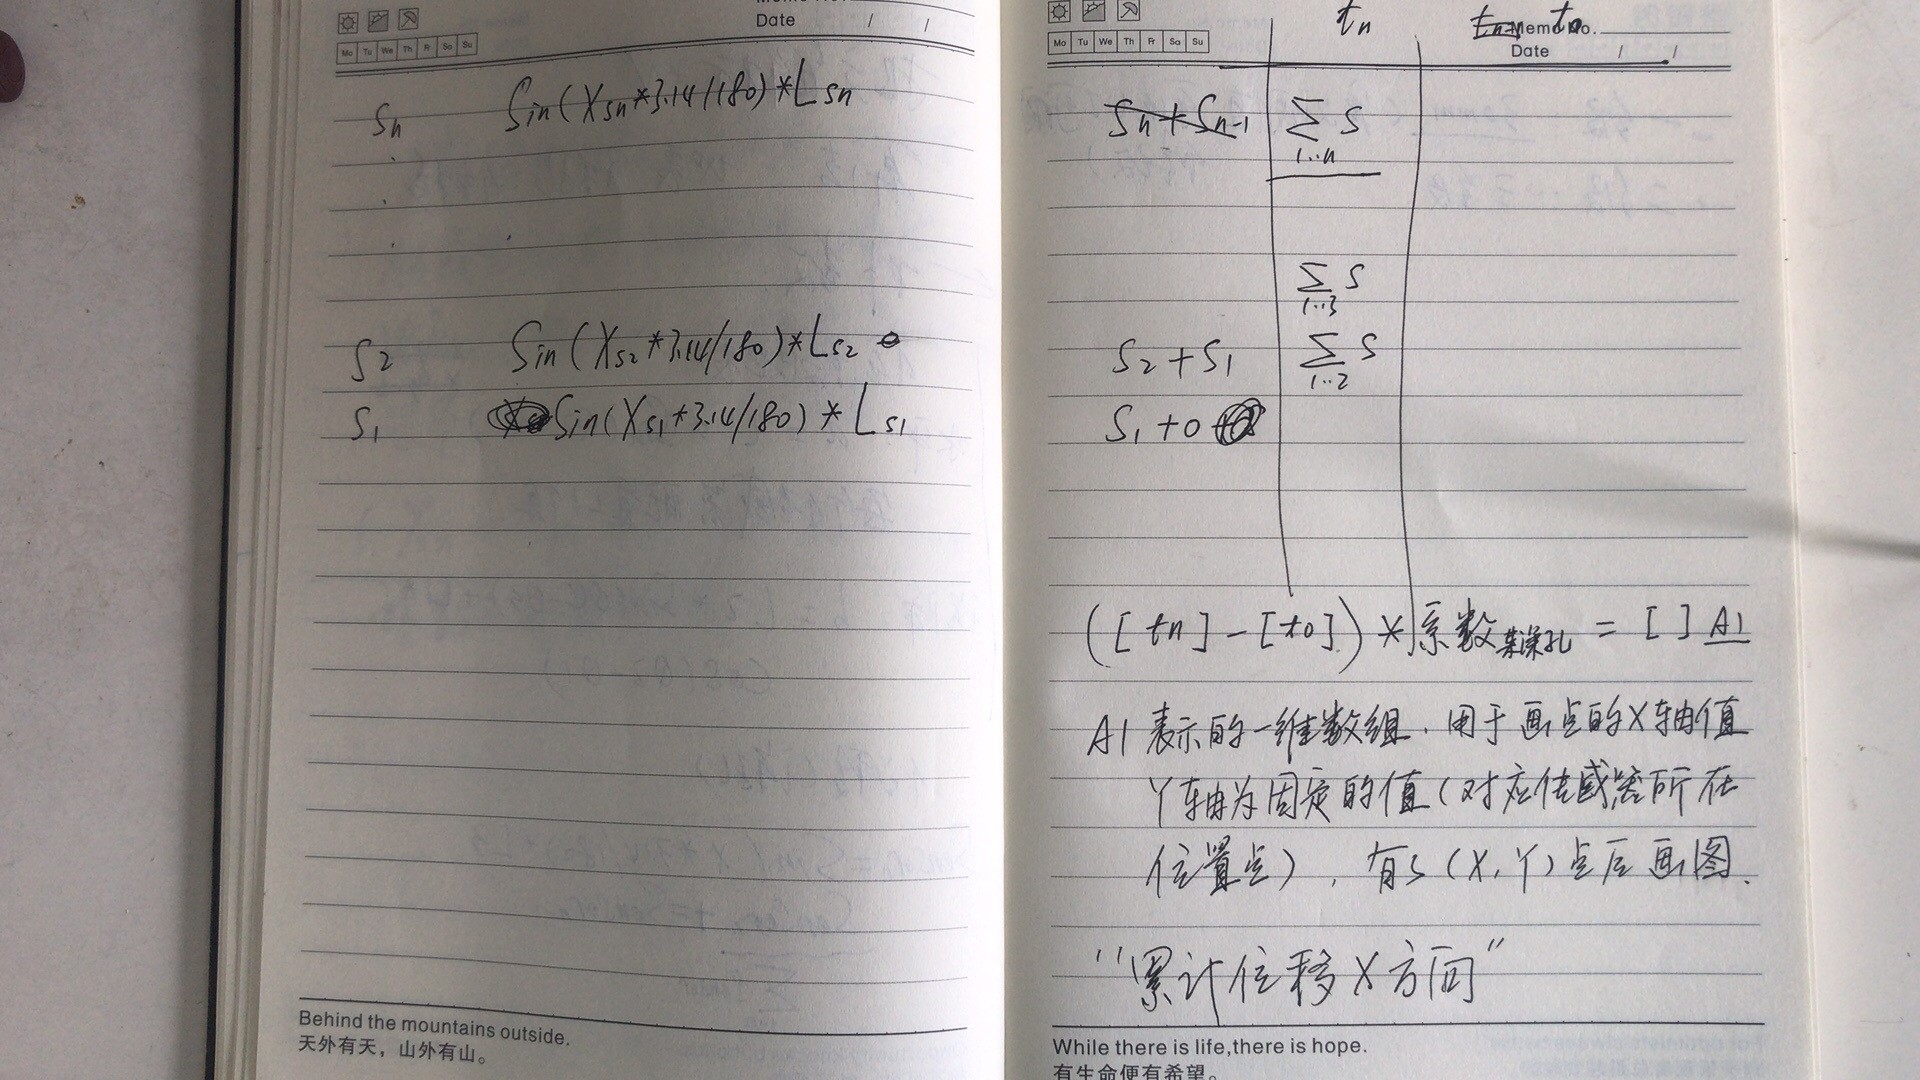 Date / /
Mo Tu We Th Fr Sa Su
Sn Sin(Xsn*3.14/180)*Lsn
S2 Sin(Xs2*3.14/180)*Ls2
S1 Sin(Xs1*3.14/180)*Ls1
Behind the mountains outside.
天外有天，山外有山。
tn tn t0
Memo No.
Mo Tu We Th Fr Sa Su
Date / /
Sn+Sn-1 ∑S
1..n
∑S
1..3
S2+S1 ∑S
1..2
S1+0
([tn]-[t0])*系数某深孔=[]A1
A1表示的一维数组.用于画点的X轴值
Y轴为固定的值(对应传感器所在
位置点),有s(X,Y)点后画图.
"累计位移X方向"
While there is life,there is hope.
有生命便有希望。